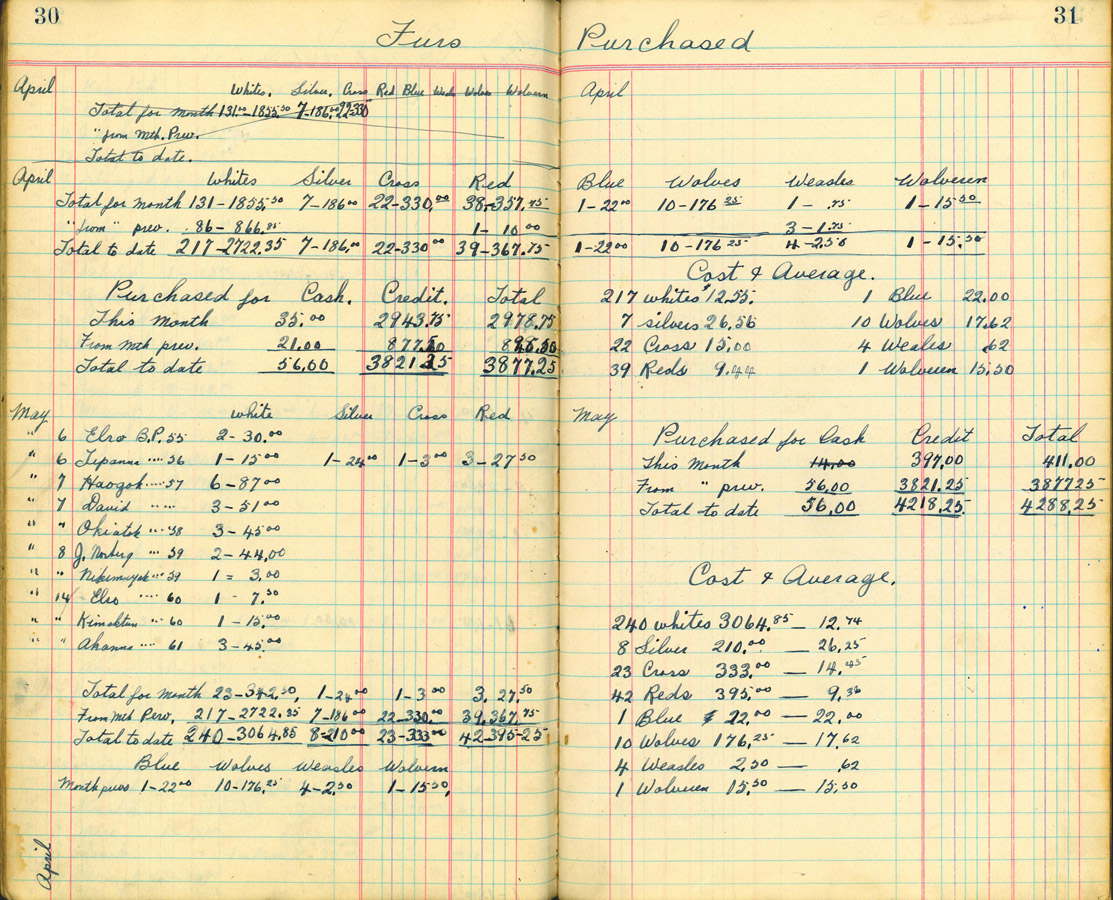 30
Furs
April Whites. Silver. Cross Red Blue Weas Wolves Wolveren
Total for month 131.00-1855.50 7-186.00 22-330
" from Mth. Prev.
Total to date.
April Whites Silver Cross Red
Total for month 131-1855.50 7-186.00 22-330.00 38-357.75
" from " prev. 86-866.85 1-10.00
Total to date 217-2722.35 7-186.00 22-330.00 39-367.75
Purchased for Cash. Credit. Total
This Month 35.00 2943.75 2978.75
From Mth prev. 21.00 877.50 898.50
Total to date 56.00 3821.25 3877.25
May White Silver Cross Red
" 6 Elso B.P. 55 2-30.00
" 6 Tipanna " 56 1-15.00 1-24.00 1-3.00 3-27.50
" 7 Haogok " 57 6-87.00
" 7 David " 3-51.00
" " Okiatok " 58 3-45.00
" 8 J. Norberg " 59 2-44.00
" " Nikimayok " 59 1 = 3.00
" 14 Elso " 60 1-7.50
" " Kimaktun " 60 1-15.00
" " Ahanna " 61 3-45.00
Total for month 23-342.50, 1-24.00 1-3.00 3. 27.50
From Mth Perv. 217-2722.35 7-186.00 22-330.00 39.367.75
Total to date 240-3064.85 8-210.00 23-333.00 42-395-25
Blue Wolves Weasles Wolvern
Month prevs 1-22.00 10-176.25 4-2.50 1-15.50,
April
31
Purchased
April
Blue Wolves Weasles Wolveren
1-22.00 10-176.25 1-.75 1-15.50
3-1.75
1-22.00 10-176.25 4-2.50 1-15.50
Cost & Average.
217 whites 12.55. 1 Blue 22.00
7 silvers 26.56 10 Wolves 17.62
22 Cross 15.00 4 Weales .62
39 Reds 9.44 1 Wolveren 15.50
May
Purchased for Cash Credit Total
This Month 14.00 397.00 411.00
From " prev. 56.00 3821.25 387725
Total to date 56.00 4218.25 4288.25
Cost & Average.
240 whites 3064.85 — 12.74
8 Silver 210.00 — 26.25
23 Cross 333.00 — 14.45
42 Reds 395.00 — 9.36
1 Blue $ 22.00 — 22.00
10 Wolves 176.25 — 17.62
4 Weasles 2.50 — .62
1 Wolveren 15.50 — 15.50